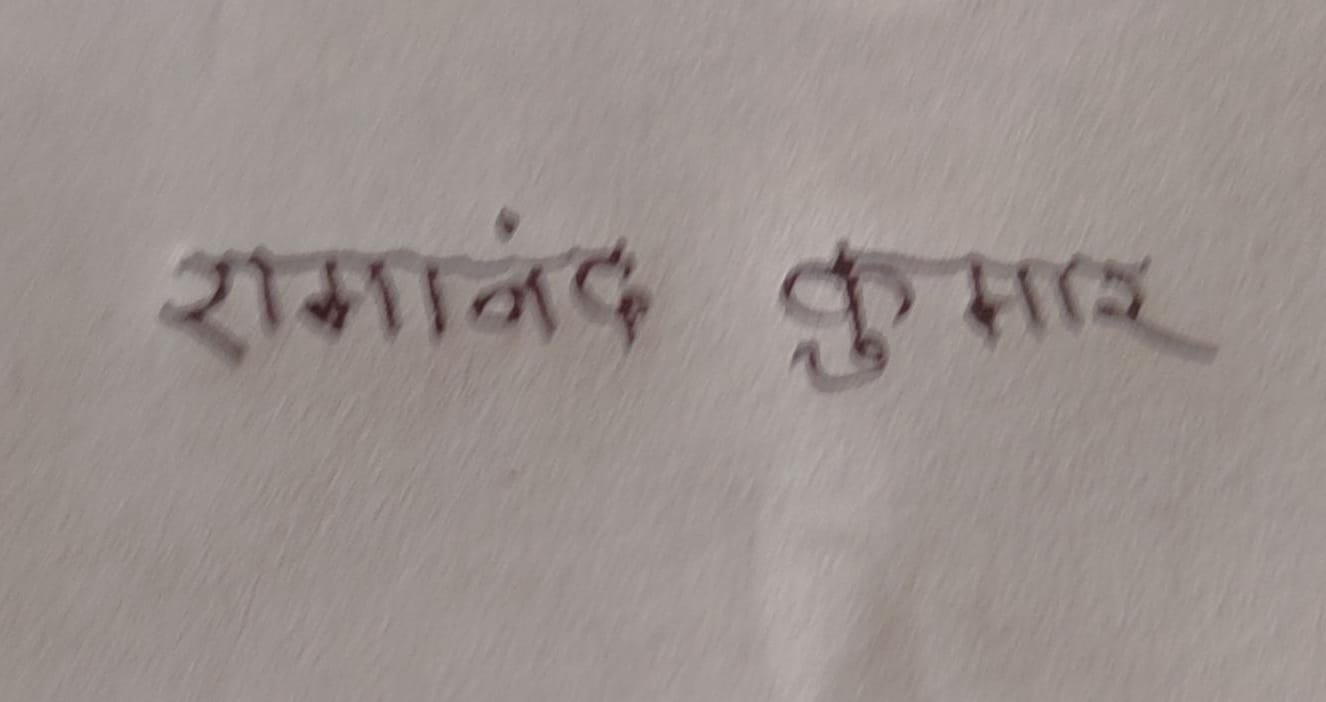 रामानंद कुमार